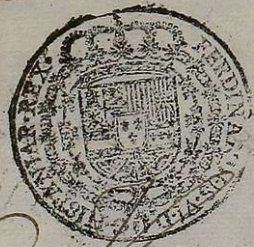 FERDINANDUS·VI·D·G·
HISPANIAR·REX·